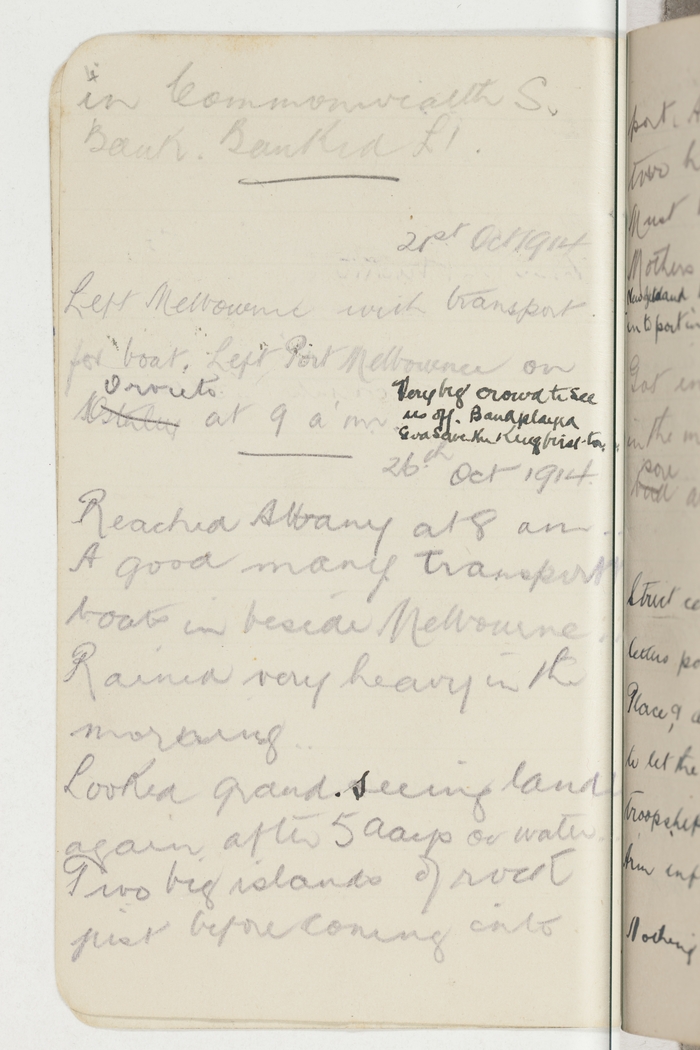 in Commonwealth S.
Bank. Banked £1.
21st Oct 1914
Left Melbourne with transport
for boat. Left Port Melbourne on
Orvieto
at 9 a.m.
Very big crowd to see
us off. Band played
God Save the King
26th Oct 1914
Reached Albany at 8 am.
A good many transport
boats in beside Melbourne
Rained very heavy in the
morning.
Looked grand. seeing land
again after 5 days on water.
Two big islands of rock
just before coming into
port.
two
Must
Mothers
into port in
Got in
in the m
Street
letters
Place,
to let the
troopship
Nothing